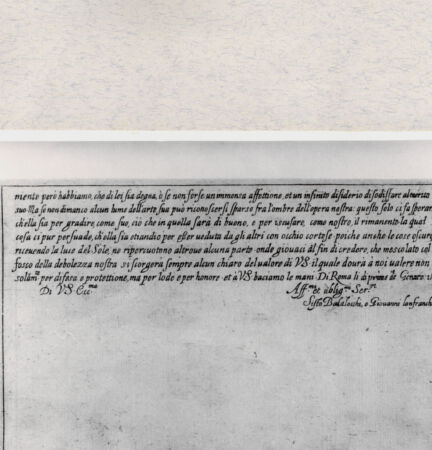 niente però habbiamo, che di lei sia degna, ò se non forse un immensa affettione, et un infinito disiderio di sodisfare al merito
suo Ma se nondimanco alcun lume dell'arte sua può riconoscersi sparso fra l'ombre dell'opera nostra: questo solo ci fa sperar
ch'ella sia per gradire, come suo, ciò che in quella sarà di buono, e per iscusare, come nostro, il rimanente. la qual
cosa ci pur persuade, ch'ella sia etiandio per esser ueduta da gli altri con occhio cortese poiche anche le cose oscure
riceuendo la luce del Sole, ne ripercuotono altroue alcuna parte onde giouaci al fin di credere, che mescolato col
fosco della debolezza nostra si scorgerà sempre alcun chiaro del ualore di VS. il quale dourà à noi ualere non
solam.te per difesa e protettione, ma per lode e per honore et à VS. baciamo le mani Di Roma li à primo di Genaro
Di VS Ecc.ma Aff.mi et oblig.mi Ser.ri
Sisto Badalocchi, e Giouanni lanfranchi